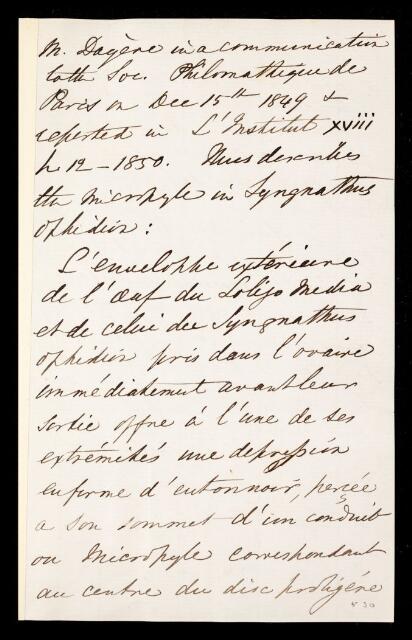 M. Doyère in a communication
to the Soc. Philomathique de
Paris on Dec 15th 1849 &
reported in L'Institut xviii
p 12 - 1850. Thus describes
the micropyle in Syngnathus
ophidion:
L'enveloppe extérieure
de l'œuf du Loligo media
et de celui du Syngnathus
ophidion pris dans l'ovaire
immédiatement avant leur
sortie offre à l'une de ses
extrémités une depression
en forme d'entonnoir, percée
a son sommet d'un conduit
ou micropyle correspondant
au centre du disc proligére